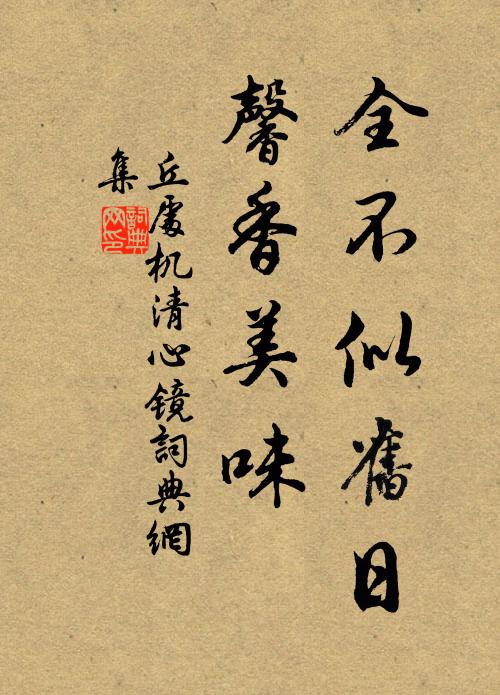 全不似舊日
馨香美味
丘處机清心鏡詞典網
集
詞典
网印